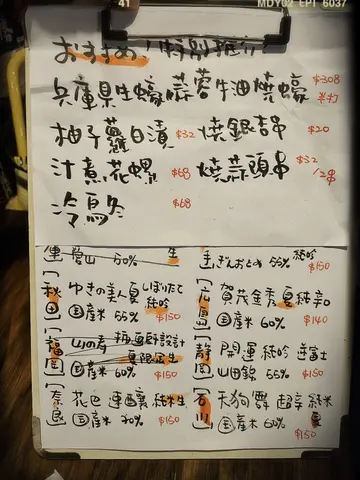 41 MDY02 EPT 6037
おすすめ!特別推介
兵庫県生蠔蒜蓉牛油燒蠔 $308 半打
柚子蘿白漬 $32 燒銀杏串 $20
汁煮花螺 $68 燒蒜頭串 $32 /2串
冷烏冬 $68
50% 生
ぎんおとめ 55% 純吟 $150
[秋田] ゆきの美人夏しぼりたて 純吟
国産米 55% $150
[広島] 賀茂金秀夏純辛口
国産米 60% $140
[福岡] 山の寿
国産米 60% $150
[静岡] 開運 純吟 逆富士
山田錦 55% $150
[奈良] 花巴 速醸純米生
国産米 70% $150
[石川] 天狗舞 超辛純米
国産米 60% 夏 $150